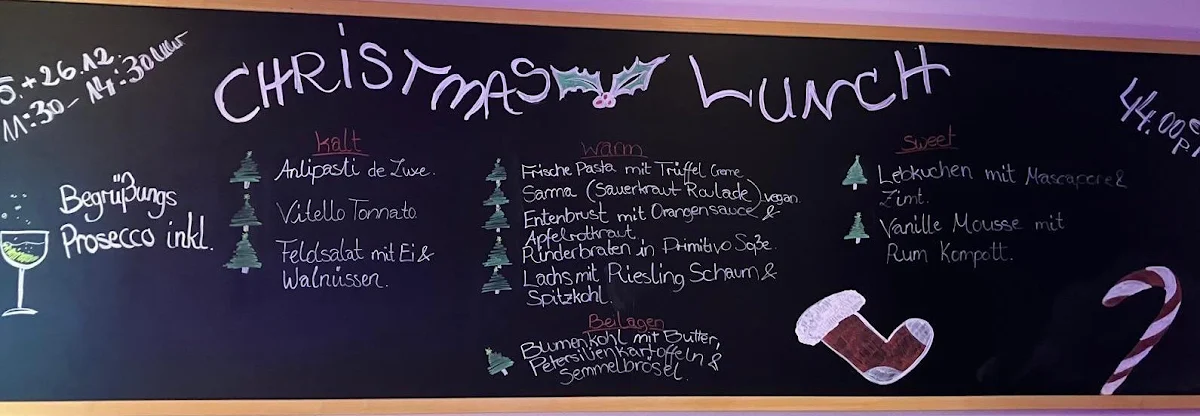 5.+26.12.
11:30-14:30 Uhr
CHRISTMAS LUNCH
44.00
Begrüßungs
Prosecco inkl.
Kalt
Antipasti de Luxe.
Vitello Tonnato.
Feldsalat mit Ei &
Walnüssen.
Warm
Frische Pasta mit Trüffel Creme
Sarma (Sauerkraut Roulade) vegan.
Entenbrust mit Orangensauce &
Apfelrotkraut.
Rinderbraten in Primitivo Soße.
Lachs mit Riesling Schaum &
Spitzkohl.
Beilagen
Blumenkohl mit Butter,
Petersilienkartoffeln &
Semmelbrösel.
Sweet
Lebkuchen mit Mascapone &
Zimt.
Vanille Mousse mit
Rum Kompott.